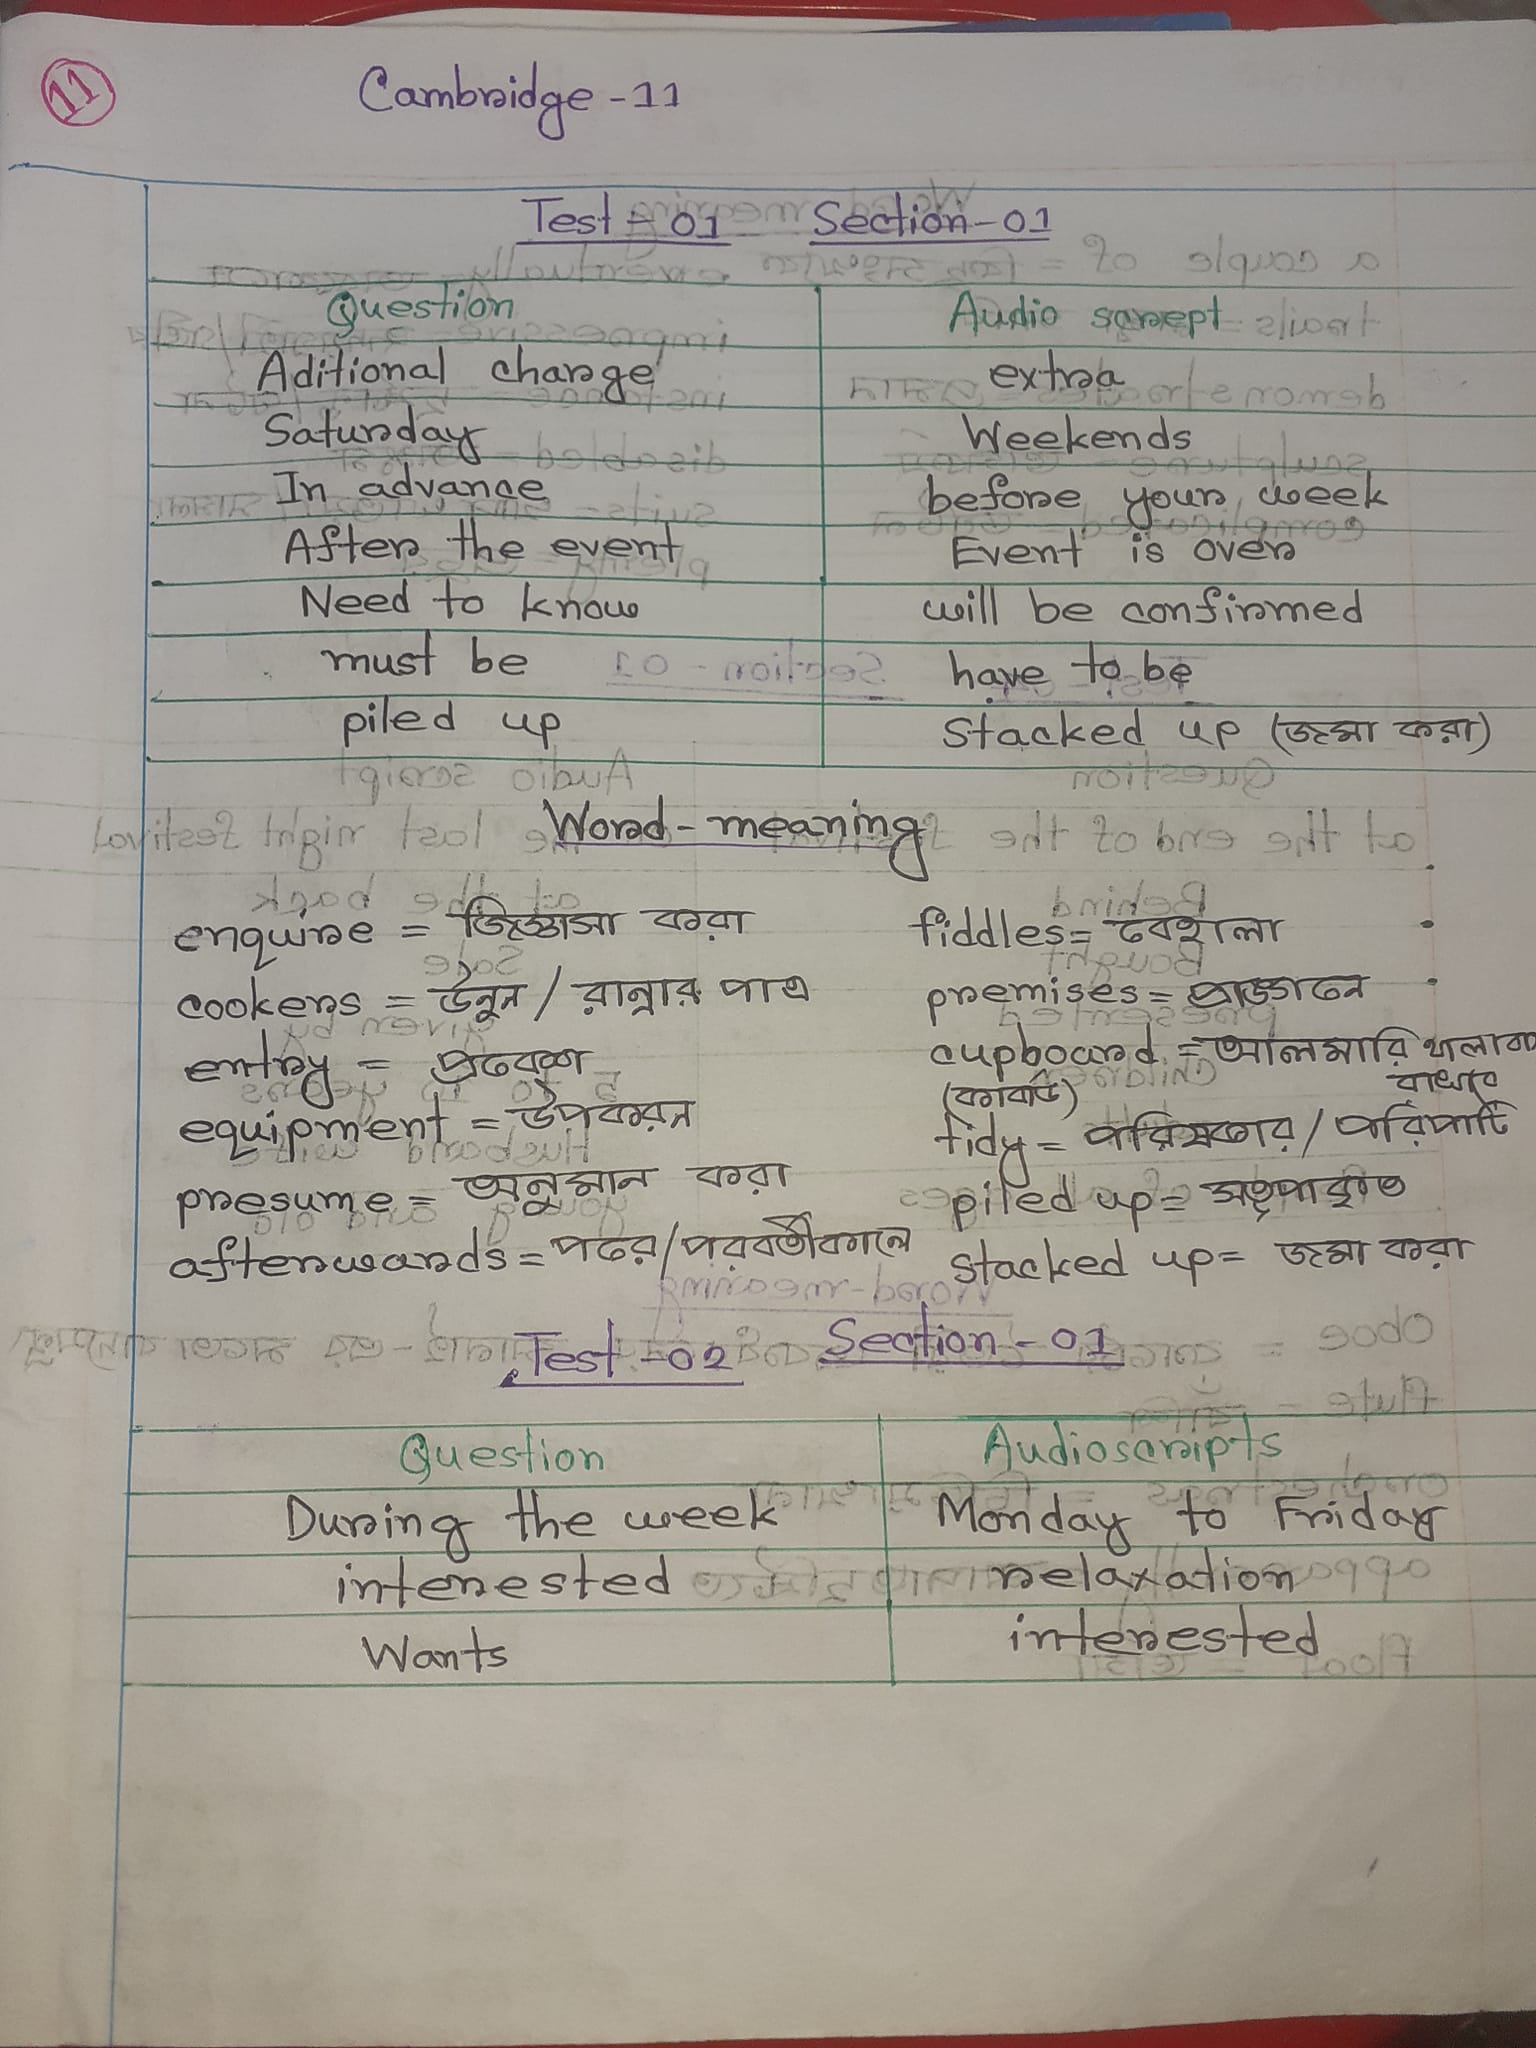 11
Cambridge - 11
Test - 01 Section - 01
Question Audio script
Aditional charge extra
Saturday Weekends
In advance before your week
After the event Event is over
Need to know will be confirmed
must be have to be
piled up Stacked up (জমা করা)
Word - meaning
enquire = জিজ্ঞাসা করা fiddles = বেহালা
cookers = উনুন / রান্নার পাত্র premises = প্রাঙ্গনে
entry = প্রবেশ cupboard = আলমারি থালাবা
(কাবার্ড) রাখার
equipment = উপকরন tidy = পরিষ্কার / পরিপাটি
presume = অনুমান করা piled up =
afterwards = পরে / পরবর্তীকালে stacked up = জমা করা
Test - 02 Section - 01
Question Audioscripts
During the week Monday to Friday
interested relaxation
Wants interested